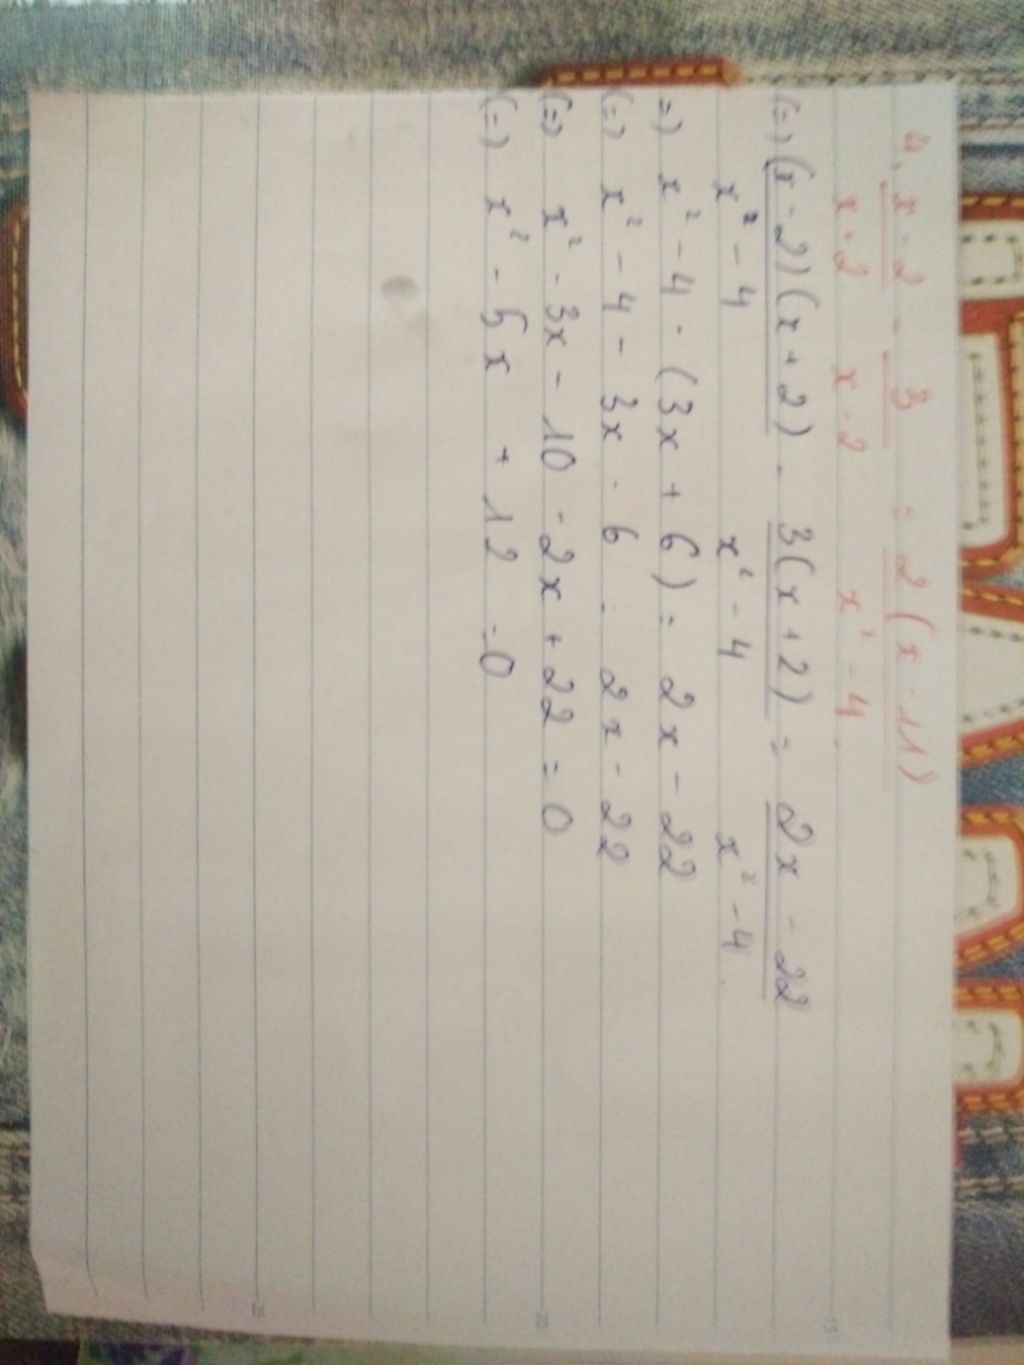 4, x-2 - 3 = 2(x-11)
x-2 x-2 x²-4.
(=) (x-2)(x+2) - 3(x+2) = 2x - 22
x²-4 x²-4 x²-4.
=) x²-4 - (3x+6) = 2x-22
(=) x²-4-3x-6 . 2x-22
(=) x²-3x-10-2x+22=0
(=) x²-5x +12 =0